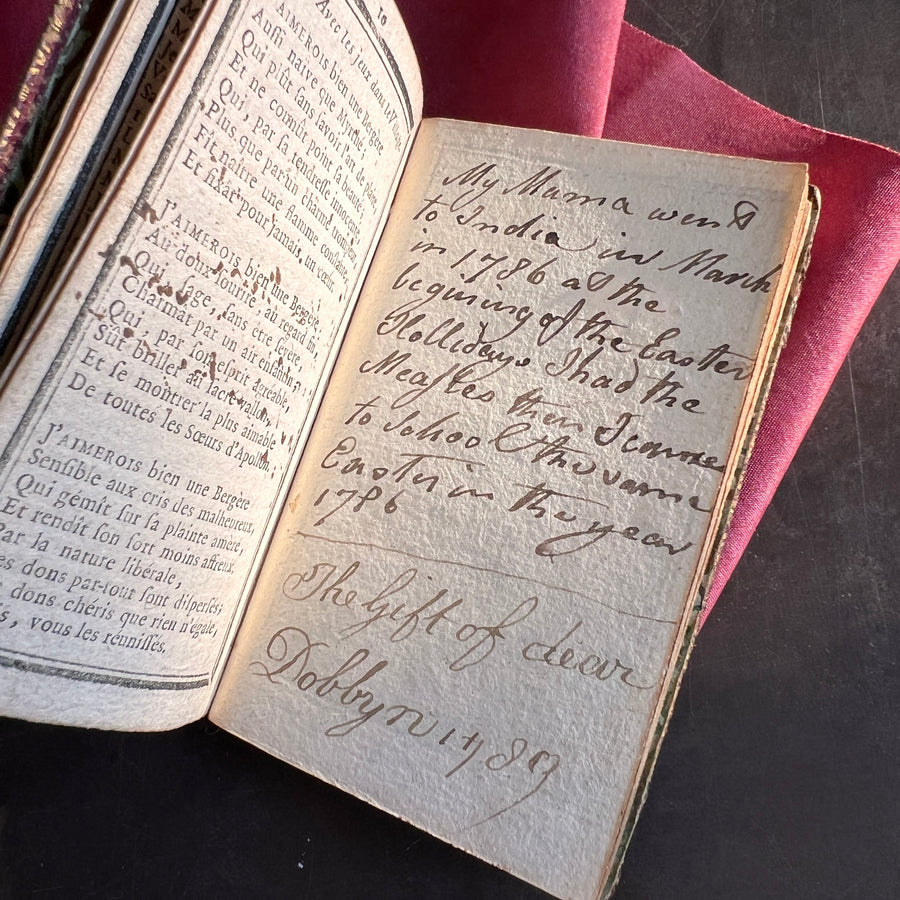 10
Avec les jeux dans le Village.
J'AIMEROIS bien une Bergère
Auſſi naïve que Myrthé,
Qui plût ſans avoir l'art de plaire,
Et ne connût point ſa beauté;
Qui, par ſa tendreſſe innocente,
Plus que par un charme trompeur,
Fît naître une flamme conſtante,
Et fixât pour jamais, un cœur.
J'AIMEROIS bien une Bergère,
Au doux ſourire, au regard fin,
Qui ſage, ſans être ſévère,
Charmât par un air enfantin;
Qui, par ſon eſprit agréable,
Sût briller au ſacré vallon,
Et ſe montrer la plus aimable
De toutes les Sœurs d'Apollon.
J'AIMEROIS bien une Bergère
Senſible aux cris des malheureux,
Qui gémît ſur ſa plainte amère,
Et rendît ſon ſort moins affreux.
Par la nature libérale,
dons par-tout ſont diſperſés;
dons chéris que rien n'égale,
vous les réuniſſés.
My Mama went
to India in March
in 1786 at the
begining of the Easter
Hollidays I had the
Meaſles then I came
to School the same
Easter in the year
1786
The Gift of dear
Dobbyn 1789